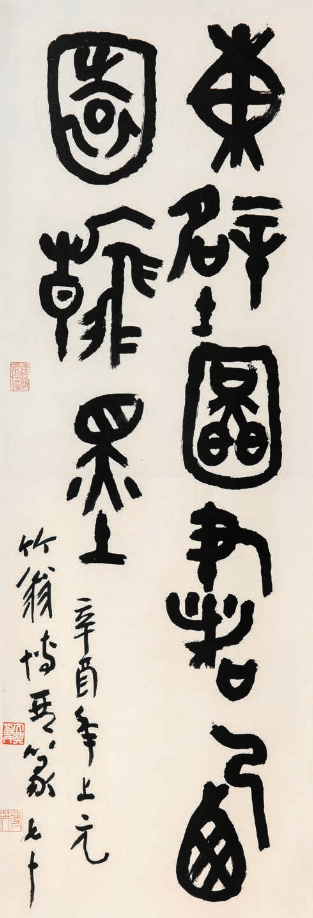 東壁圖書西
園翰墨
辛酉年上元
竹翁博琴篆七十